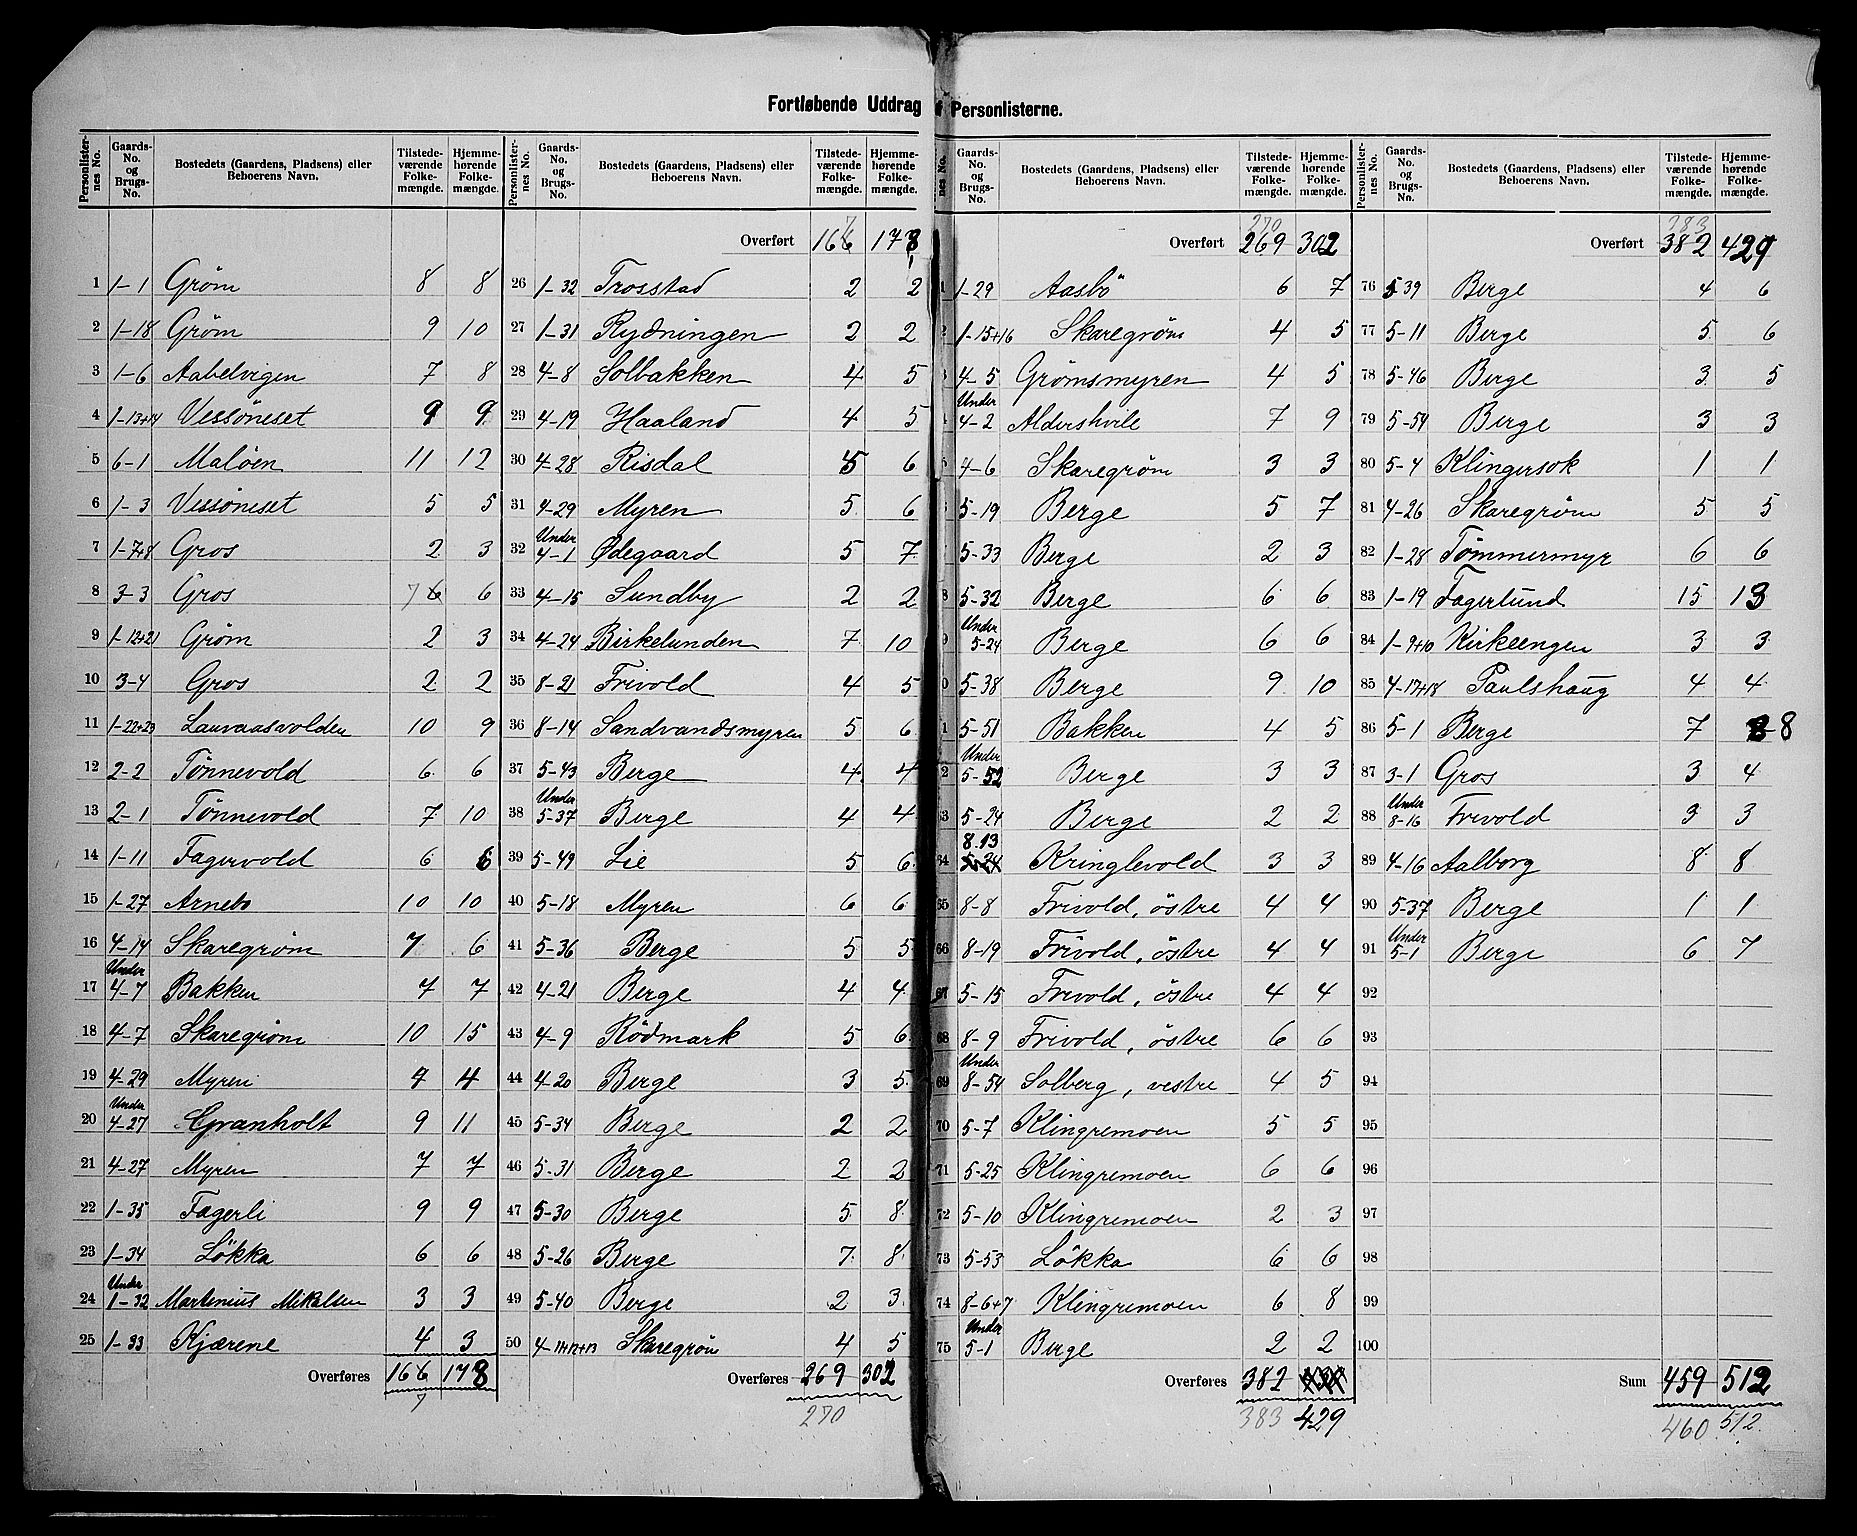 Fortløbende Uddrag af Personlisterne.
Personlister-nes No. | Gaards-No. og Brugs-No. | Bostedets (Gaardens, Pladsens) eller Beboerens Navn. | Tilstede-værende Folke-mængde. | Hjemme-hørende Folke-mængde.
1 1-1 Grøm 8 8
2 1-18 Grøm 9 10
3 1-6 Aabelvigen 7 8
4 1-13+14 Vessøneset 9 9
5 6-1 Maløen 11 12
6 1-3 Vessøneset 5 5
7 1-7+8 Gros 2 3
8 3-3 Gros 7 6 6
9 1-12+21 Grøm 2 3
10 3-4 Gros 2 2
11 1-22+23 Lauvaasvolden 10 9
12 2-2 Tönnevold 6 6
13 2-1 Tönnevold 7 10
14 1-11 Fagervold 6 6
15 1-27 Arnebo 10 10
16 4-14 Skaregrøm 7 6
17 Under 4-7 Bakken 7 7
18 4-7 Skaregrøm 10 15
19 4-29 Myren 4
20 Under 4-27 Granholt 9 11
21 4-27 Myren 7 7
22 1-35 Fagerli 9 9
23 1-34 Lökka 6 6
24 Under 1-32 Martinius Mikalsen 3 3
25 1-33 Kjærene 4 3
Overføres 166 178
7
Personlister-nes No. | Gaards-No. og Brugs-No. | Bostedets (Gaardens, Pladsens) eller Beboerens Navn. | Tilstede-værende Folke-mængde. | Hjemme-hørende Folke-mængde.
7
Overført 166 178
26 1-32 Trosstad 2 2
27 1-31 Rydningen 2 2
28 4-8 Solbakken 4 5
29 4-19 Haaland 4 5
30 4-28 Risdal 5 6
31 4-29 Myren 5 6
32 Under 4-1 Ødegaard 5 7
33 4-15 Sundby 2 2
34 4-24 Birkelunden 7 10
35 8-21 Frivold 4 5
36 8-14 Sandvandsmyren 5 6
37 5-43 Berge 4 4
38 Under 5-37 Berge 4 4
39 5-49 Lie 5 6
40 5-18 Myren 6 6
41 5-36 Berge 5 5
42 4-21 Berge 4 4
43 4-9 Rödmark 5 6
44 4-20 Berge 3 5
45 5-34 Berge 2 2
46 5-31 Berge 2 2
47 5-30 Berge 5 8
48 5-26 Berge 7 8
49 5-40 Berge 2 3
50 4-11+12+13 Skaregrøm 4 5
Overføres 269 302
270
nes No. | Gaards-No. og Brugs-No. | Bostedets (Gaardens, Pladsens) eller Beboerens Navn. | Tilstede-værende Folke-mængde. | Hjemme-hørende Folke-mængde.
270
Overført 269 302
1 1-29 Aasbö 6 7
2 1-15+16 Skaregrøm 4 5
3 4-5 Grømsmyren 4 5
4 Under 4-2 Aldershvile 7 9
5 4-6 Skaregrøm 3 3
5-19 Berge 5 7
5-33 Berge 2 3
8 5-32 Berge 6 6
9 Under 5-24 Berge 6 6
0 5-38 Berge 9 10
1 5-51 Bakken 4 5
2 Under 5-52 Berge 3 3
63 5-24 Berge 2 2
64 8.13 5-24 Kringlevold 3 3
65 8-8 Frivold, östre 4 4
66 8-19 Frivold, östre 4 4
67 5-15 Frivold, östre 4 4
68 8-9 Frivold, östre 6 6
69 Under 8-54 Solberg, vestre 4 5
70 5-7 Klingremoen 5 5
71 5-25 Klingremoen 6 6
72 5-10 Klingremoen 2 3
73 5-53 Lökka 6 6
74 8-6+7 Klingremoen 6 8
75 Under 5-1 Berge 2 2
Overføres 382
383 429
Personlister-nes No. | Gaards-No. og Brugs-No. | Bostedets (Gaardens, Pladsens) eller Beboerens Navn. | Tilstede-værende Folke-mængde. | Hjemme-hørende Folke-mængde.
383
Overført 382 429
76 5 39 Berge 4 6
77 5-11 Berge 5 6
78 5-46 Berge 3 5
79 5-54 Berge 3 3
80 5-4 Klingersok 1 1
81 4-26 Skaregrøm 5 5
82 1-28 Tömmermyr 6 6
83 1-19 Fagerlund 15 13
84 1-9+10 Kirkeengen 3 3
85 4-17+18 Paulshaug 4 4
86 5-1 Berge 7 8
87 3-1 Gros 3 4
88 Under 8-16 Frivold 3 3
89 4-16 Aalborg 8 8
90 5-37 Berge 1 1
91 Under 5-1 Berge 6 7
92
93
94
95
96
97
98
99
100
Sum 459 512
460 512